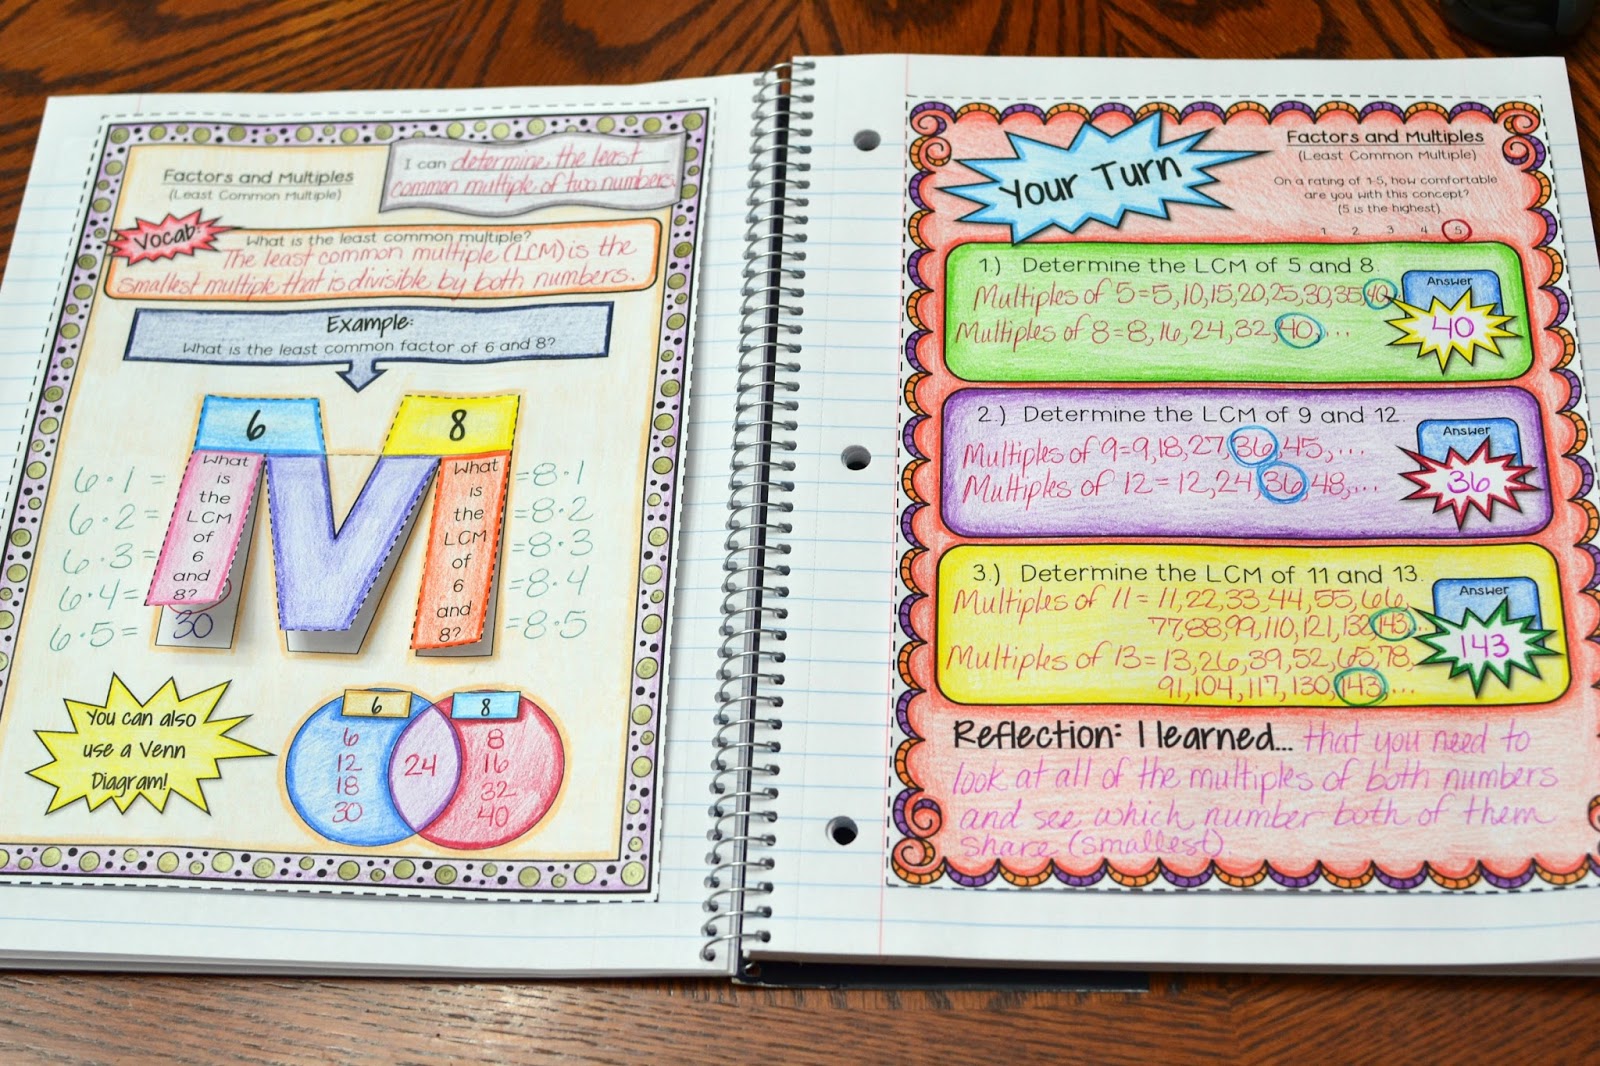 Factors and Multiples
(Least Common Multiple)
I can determine the least
common multiple of two numbers.
Vocab:
What is the least common multiple?
The least common multiple (LCM) is the
smallest multiple that is divisible by both numbers.
Example:
What is the least common factor of 6 and 8?
6
8
6·1=
6·2=
6·3=
6·4=
6·5=
What
is
the
LCM
of
6
and
8?
30
What
is
the
LCM
of
6
and
8?
=8·1
=8·2
=8·3
=8·4
=8·5
You can also
use a Venn
Diagram!
6
8
6
12
18
30
24
8
16
32
40
Your Turn
Factors and Multiples
(Least Common Multiple)
On a rating of 1-5, how comfortable
are you with this concept?
(5 is the highest)
1 2 3 4 5
1.) Determine the LCM of 5 and 8
Multiples of 5=5,10,15,20,25,30,35,40
Multiples of 8=8,16,24,32,40,...
Answer
40
2.) Determine the LCM of 9 and 12.
Multiples of 9=9,18,27,36,45,...
Multiples of 12=12,24,36,48,...
Answer
36
3.) Determine the LCM of 11 and 13.
Multiples of 11=11,22,33,44,55,66,
77,88,99,110,121,132,143,...
Multiples of 13=13,26,39,52,65,78,
91,104,117,130,143,...
Answer
143
Reflection: I learned... that you need to
look at all of the multiples of both numbers
and see which number both of them
share (smallest).